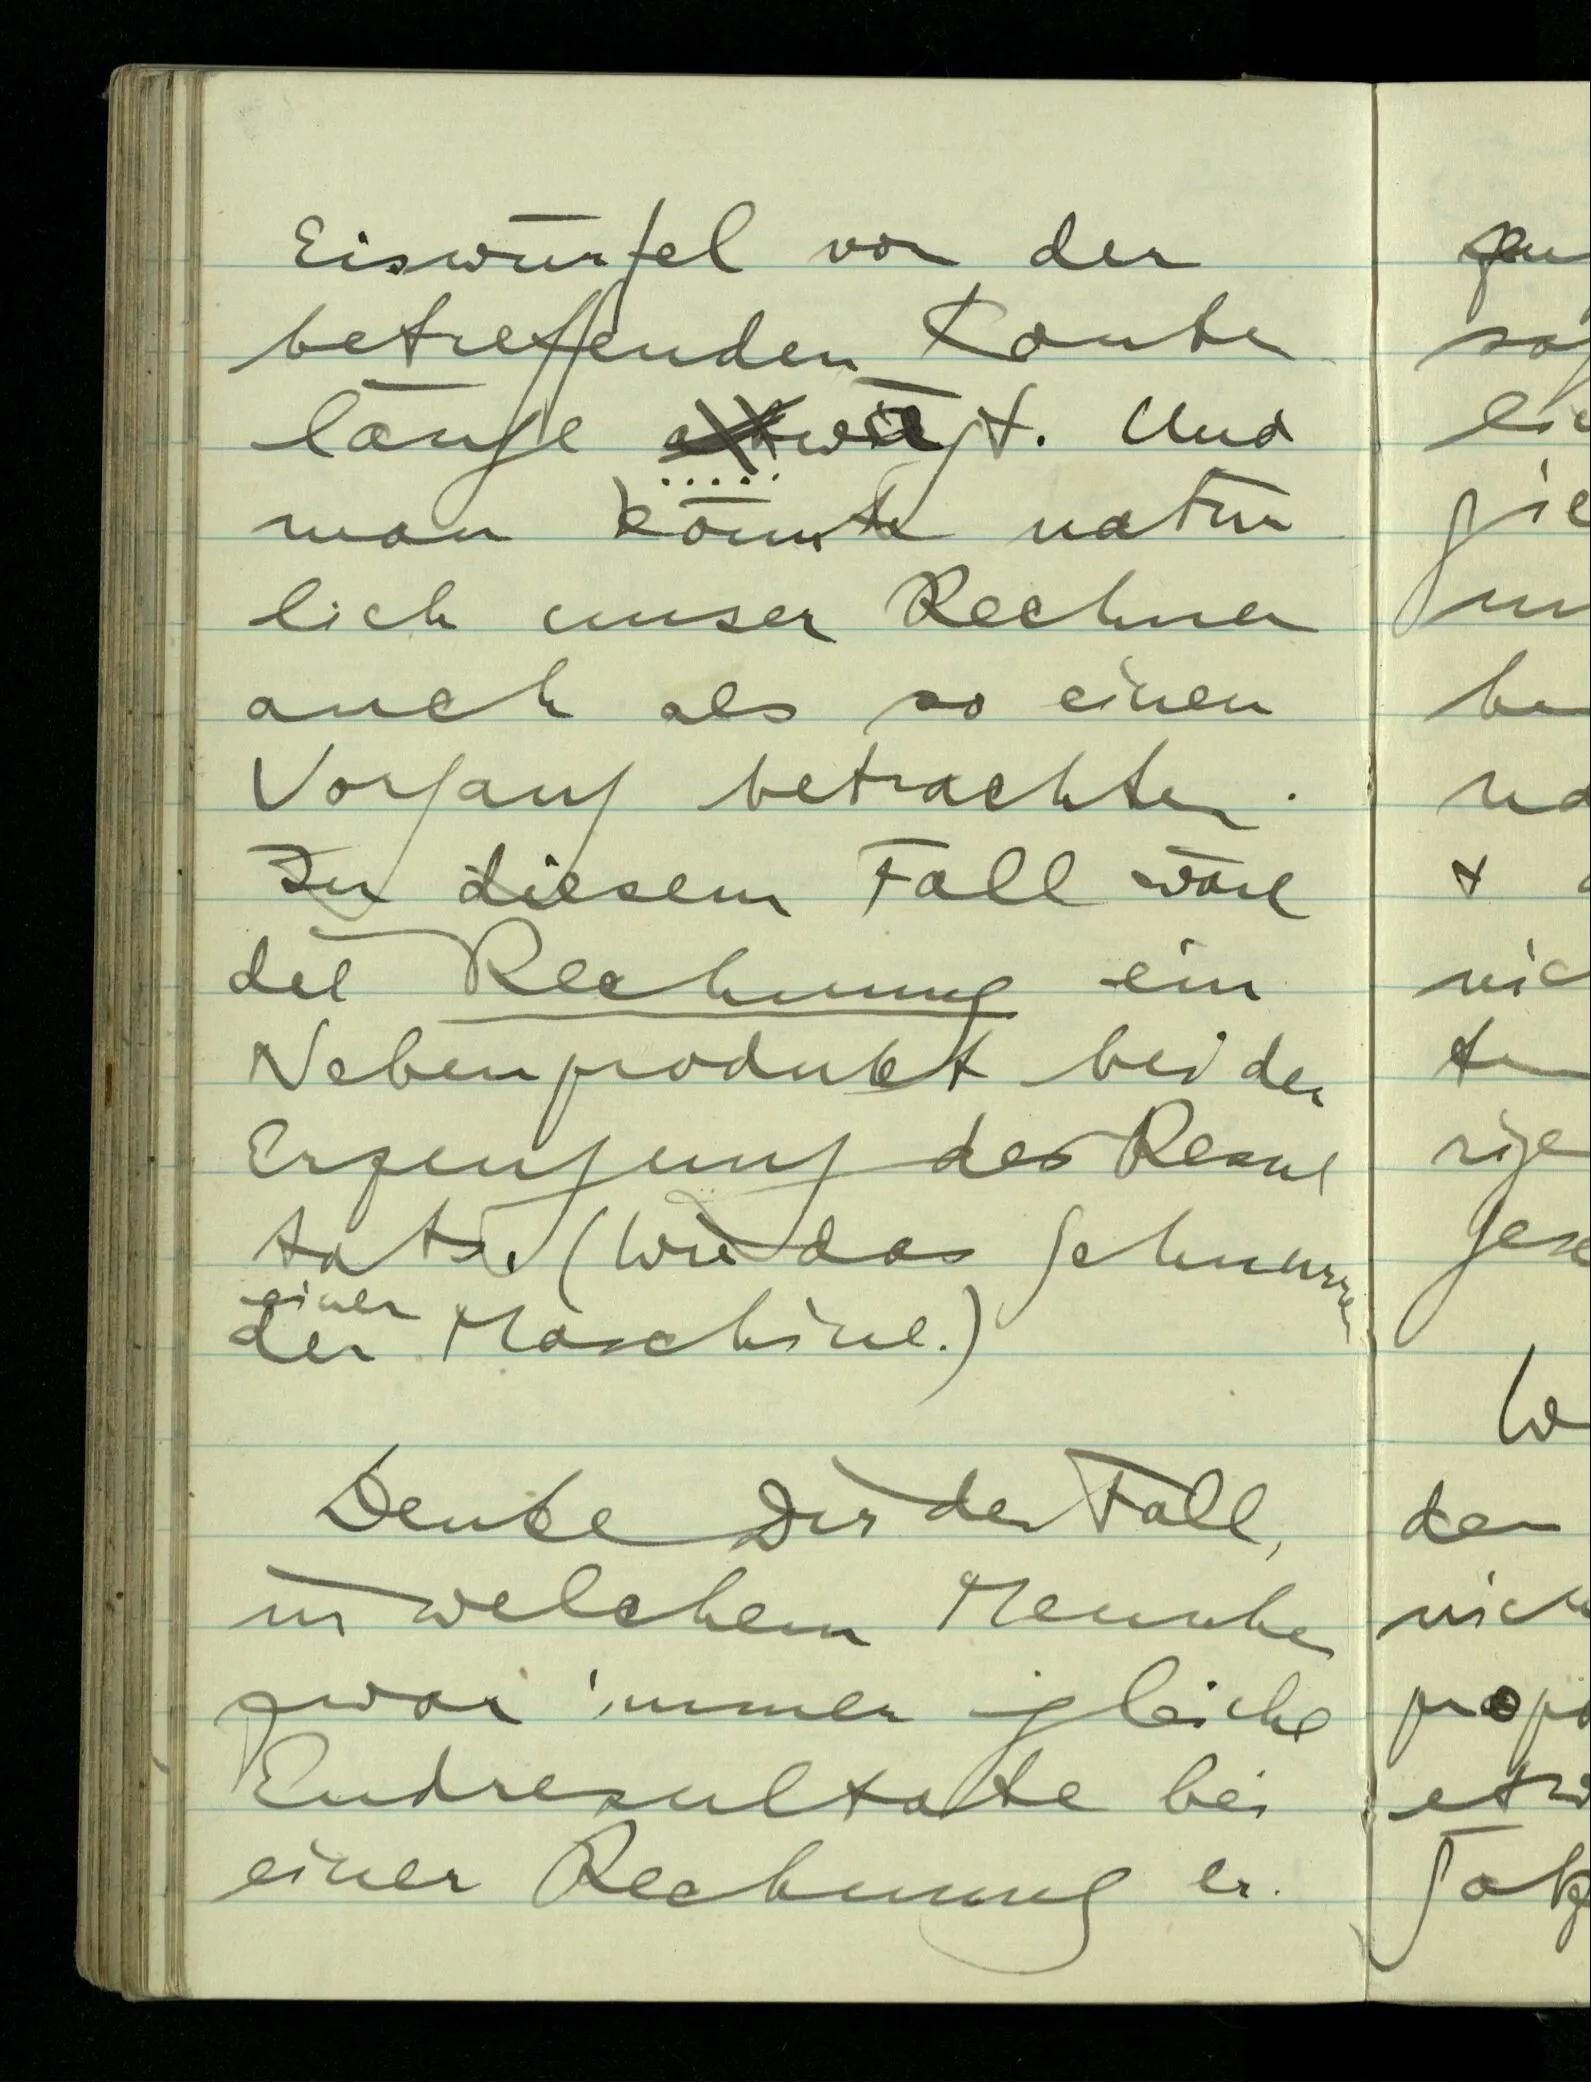 Eiswürfel von der
betreffenden Kanten
länge wiegt. Und
man könnte natür
lich unser Rechnen
auch als so einen
Vorgang betrachten.
In diesem Fall wäre
die Rechnung ein
Nebenprodukt bei der
Erzeugung des Resul
tats. (Wie das Schnurren
einer
der Maschine.)
Denke Dir den Fall,
in welchem Menschen
zwar immer gleiche
Endresultate bei
einer Rechnung er.